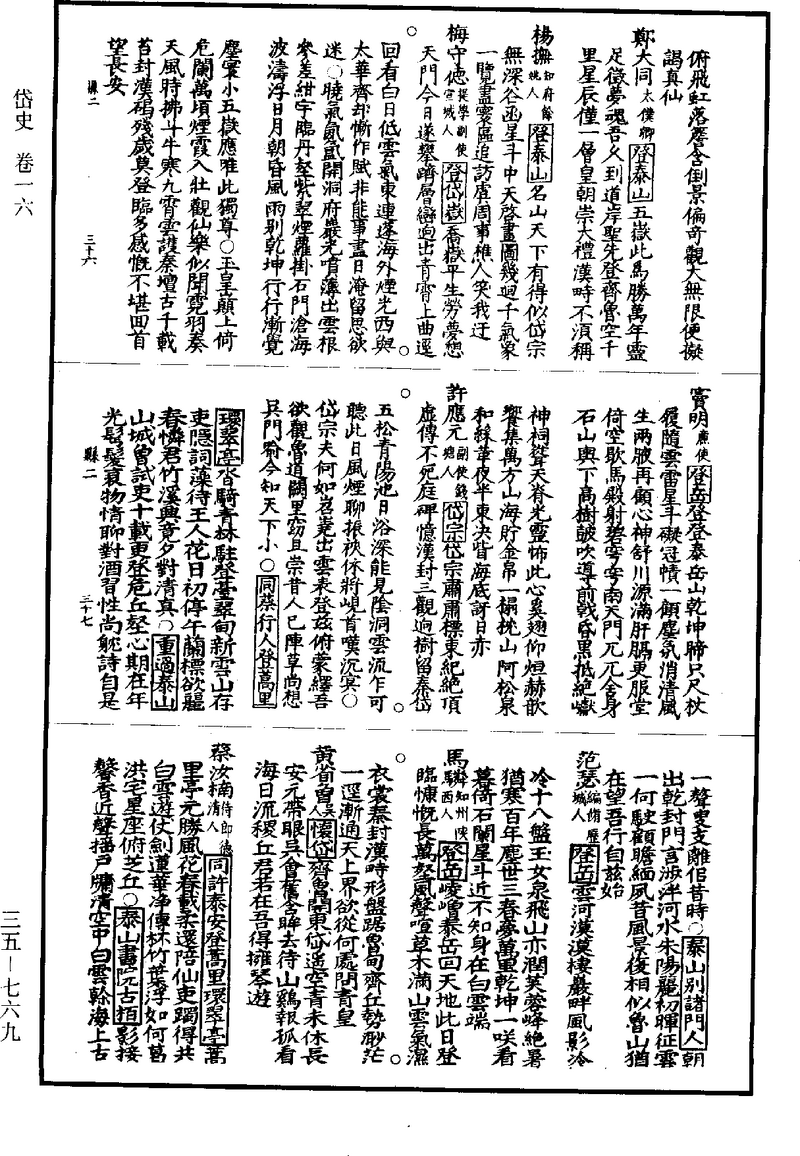 俯飛虹落塵含倒景偏奇觀大無限便擬
謁真仙
鄭大同太僕卿登泰山五嶽此爲勝萬年靈
足徵夢魂吾久到道岸聖先登齊魯空千
里星辰僅一層皇朝崇大禮漢時不須稱
楊撫知府餘姚人登泰山名山天下有得似岱宗
無深谷函星斗中天啓畫圖幾迴千氣象
一覽盡寰區追訪虞周事樵人笑我迂
梅守德提學副使宣城人登岱嶽喬嶽平生勞夢想
天門今日遂攀躋層巒迥出青霄上曲逕
回看白日低雲氣東連蓬海外煙光西與
太華齊却慚作賦非能事盡日淹留思欲
迷○曉氣氤氳開洞府巖光噴薄出雲根
參差紺宇臨丹壑紫翠煙蘿掛石門滄海
波濤浮日月朝昏風雨別乾坤行行漸覺
塵寰小五嶽應唯此獨尊○玉皇頂上倚
危闌萬頃煙霞入壯觀仙樂似聞霓羽奏
天風時拂斗牛寒九霄雲護秦壇古千載
苔封漢碣殘歲莫登臨多感慨不堪回首
望長安
縣二
三十六
岱史 卷一六
竇明廉使登岳登登泰岳山乾坤歸只尺杖
履隨雲雷星斗礙冠幘一顧塵氣消清風
生兩腋再顧心神舒川源滿肝膈更服堂
倚空歇馬毆射碧穹穹南天門兀兀舍身
石山輿下高樹皷吹導前戟昏黑抵絶巘
神祠聳天脊光靈怖此心奚翅仰烜赫歆
饗集萬方山海貯金帛一榻枕山阿松泉
和綵華夜半東决眥海底訝日亦
許應元副使錢塘人岱宗岱宗肅肅標東紀絶頂
虛傳不死庭碑憶漢封三觀迥樹留秦岱
五松青陽池日浴深能見陰洞雲流乍可
聽此日風煙聊振袂休將峴首嘆沉冥○
岱宗夫何如岧嶤出雲表登兹俯蒙繹吾
欲觀魯道闕里窈且崇昔人已陣草尚想
吳門騎今知天下小○同蔡行人登蒿里
環翠亭沓騎青林駐登臺翠甸新雲山存
吏隱詞藻待王人花日初停午蘭標欲驅
春憐君竹溪興竟夕對清真○重過泰山
山城曾試吏十載更登危丘壑心期在年
光鬂髮衰物情聊對酒習性尚躭詩自是
縣二
三十七
一聱叟支離佀昔時○泰山别諸門人朝
出乾封門言涉泮河水朱陽麗初暉征雲
一何駛顧瞻緬風昔風景復相似魯山猶
在望吾行自兹始
范瑟編脩歷城人登岳雲河漠漠棲巖畔風影冷
冷十八盤玉女泉飛山亦潤芙蓉峰絶暑
猶寒百年塵世三春夢萬里乾坤一咲看
暮倚石闌星斗近不知身在白雲端
馬驎知州陝西人登岳崚嶒泰岳回天地此日登
臨慷慨長萬壑風聲喧草木滿山雲氣濕
衣裳秦封漢時形盤踞魯甸齊丘勢渺茫
一逕漸通天上界欲從何處問青皇
黄省曾吳人懷岱齊魯開東岱遥空青未休長
安元帶眼吳會舊含眸去侍山鷄報孤看
海日流稷丘君若在吾得擁琴遊
蔡汝楠侍郎德清人同許泰安登蒿里環翠亭蒿
里亭元勝風花春載柔還陪仙吏躅得共
白雲遊仗劍蓮華净傳杯竹葉浮如何葛
洪宅星座俯芝丘○泰山書院古栢影接
聱香近聲摇戸牖清空中白雲翰海上古
三五—七六九